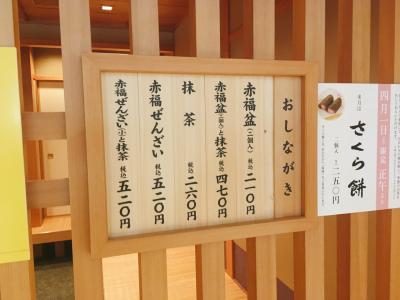 おしながき
赤福盆(二個入) 税込 二一〇円
赤福盆(二個入)と抹茶 税込 四七〇円
抹茶 税込 二六〇円
赤福ぜんざい 税込 五二〇円
赤福ぜんざい(小)と抹茶 税込 五二〇円
四月一日
正午
さくら餅
二五〇円